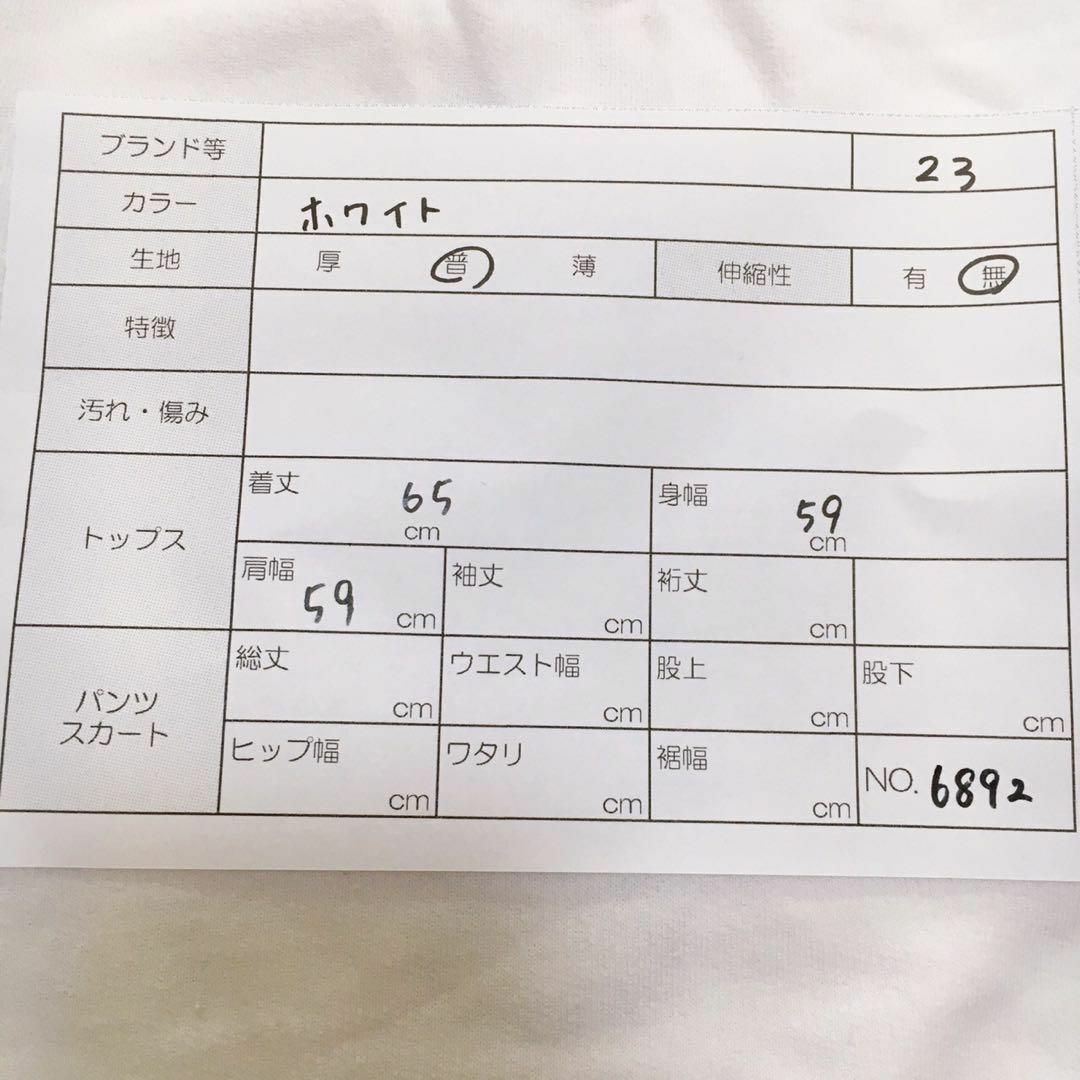 ブランド等 23
カラー ホワイト
生地 厚 普 薄 伸縮性 有 無
特徴
汚れ・傷み
トップス
着丈 65 cm 身幅 59 cm
肩幅 59 cm 袖丈 cm 裄丈 cm
パンツ
スカート
総丈 cm ウエスト幅 cm 股上 cm 股下 cm
ヒップ幅 cm ワタリ cm 裾幅 cm NO. 6892